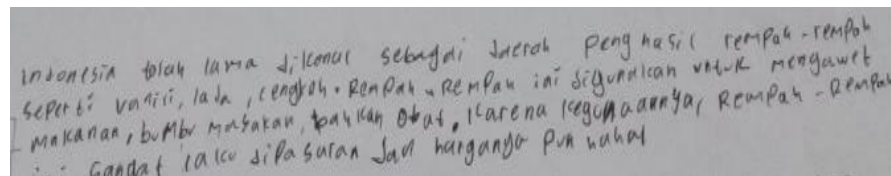 indonesia telah lama dikenal sebagai daerah penghasil rempah-rempah
seperti vanili, lada, cengkeh. Rempah-Rempah ini digunakan untuk mengawet
makanan, bumbu masakan, bahkan obat, karena kegunaannya, Rempah-Rempah
ini sangat laku dipasaran dan harganya pun mahal